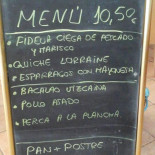 MENÚ 10,50€
• FIDEUA CIEGA DE PESCADO
Y MARISCO
• QUICHE LORRAINE
• ESPARRAGOS CON MAYONESA
• BACALAO VIZCAINA
• POLLO ASADO
• PERCA A LA PLANCHA
PAN + POSTRE